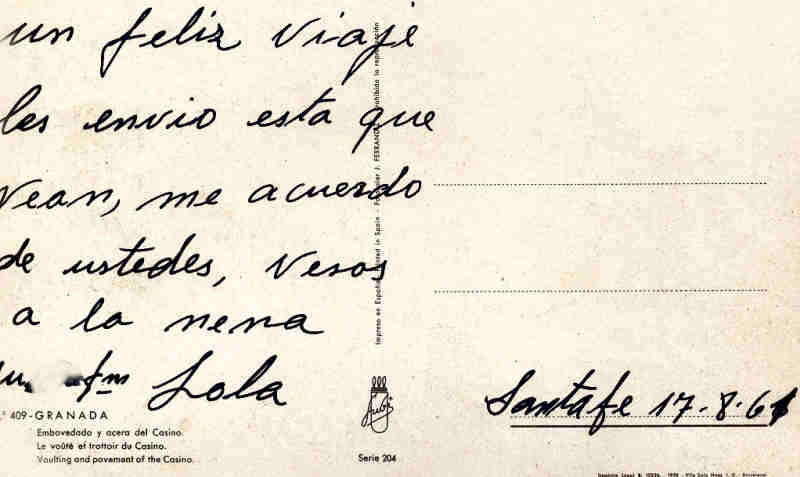 un feliz viaje
les envio esta que
vean, me acuerdo
de ustedes, vesos
a la nena
Lola
409-GRANADA
Embovedado y acera del Casino.
Le voûté et trottoir du Casino.
Vaulting and pavement of the Casino.
Impreso en España Printed in Spain J. FERRAND prohibida la reproducción
Serie 204
Santafe 17-8-61
Depósito Legal B.